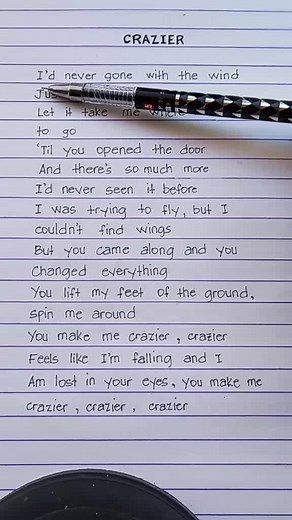 CRAZIER
I'd never gone with the wind
Let it take me where
to go
'Til you opened the door
And there's so much more
I'd never seen it before
I was trying to fly, but I
couldn't find wings
But you came along and you
Changed everything
You lift my feet of the ground,
spin me around
You make me crazier, crazier
Feels like I'm falling and I
Am lost in your eyes, you make me
crazier, crazier, crazier